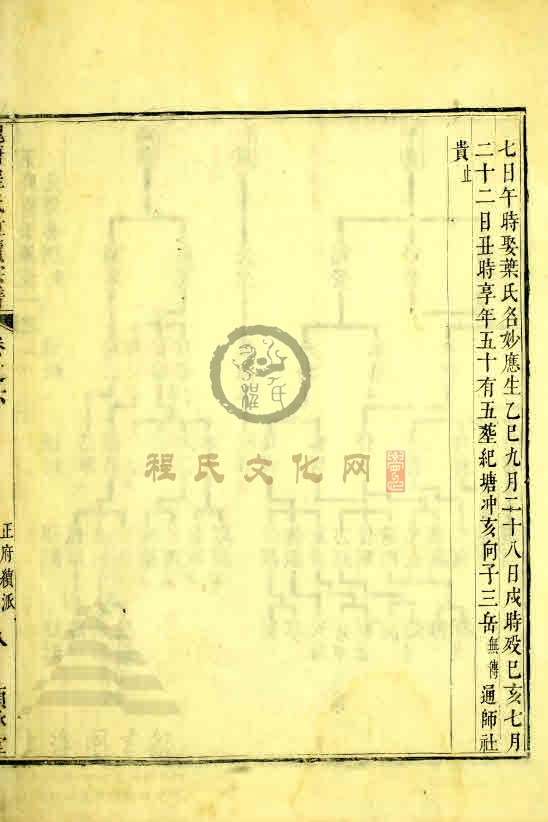 七日午時娶葉氏名妙應生乙巳九月二十八日戌時歿已亥七月
二十二日丑時享年五十有五葬紀塘冲亥向子三岳無傳通師社
貴止
程氏文化网
正府積派